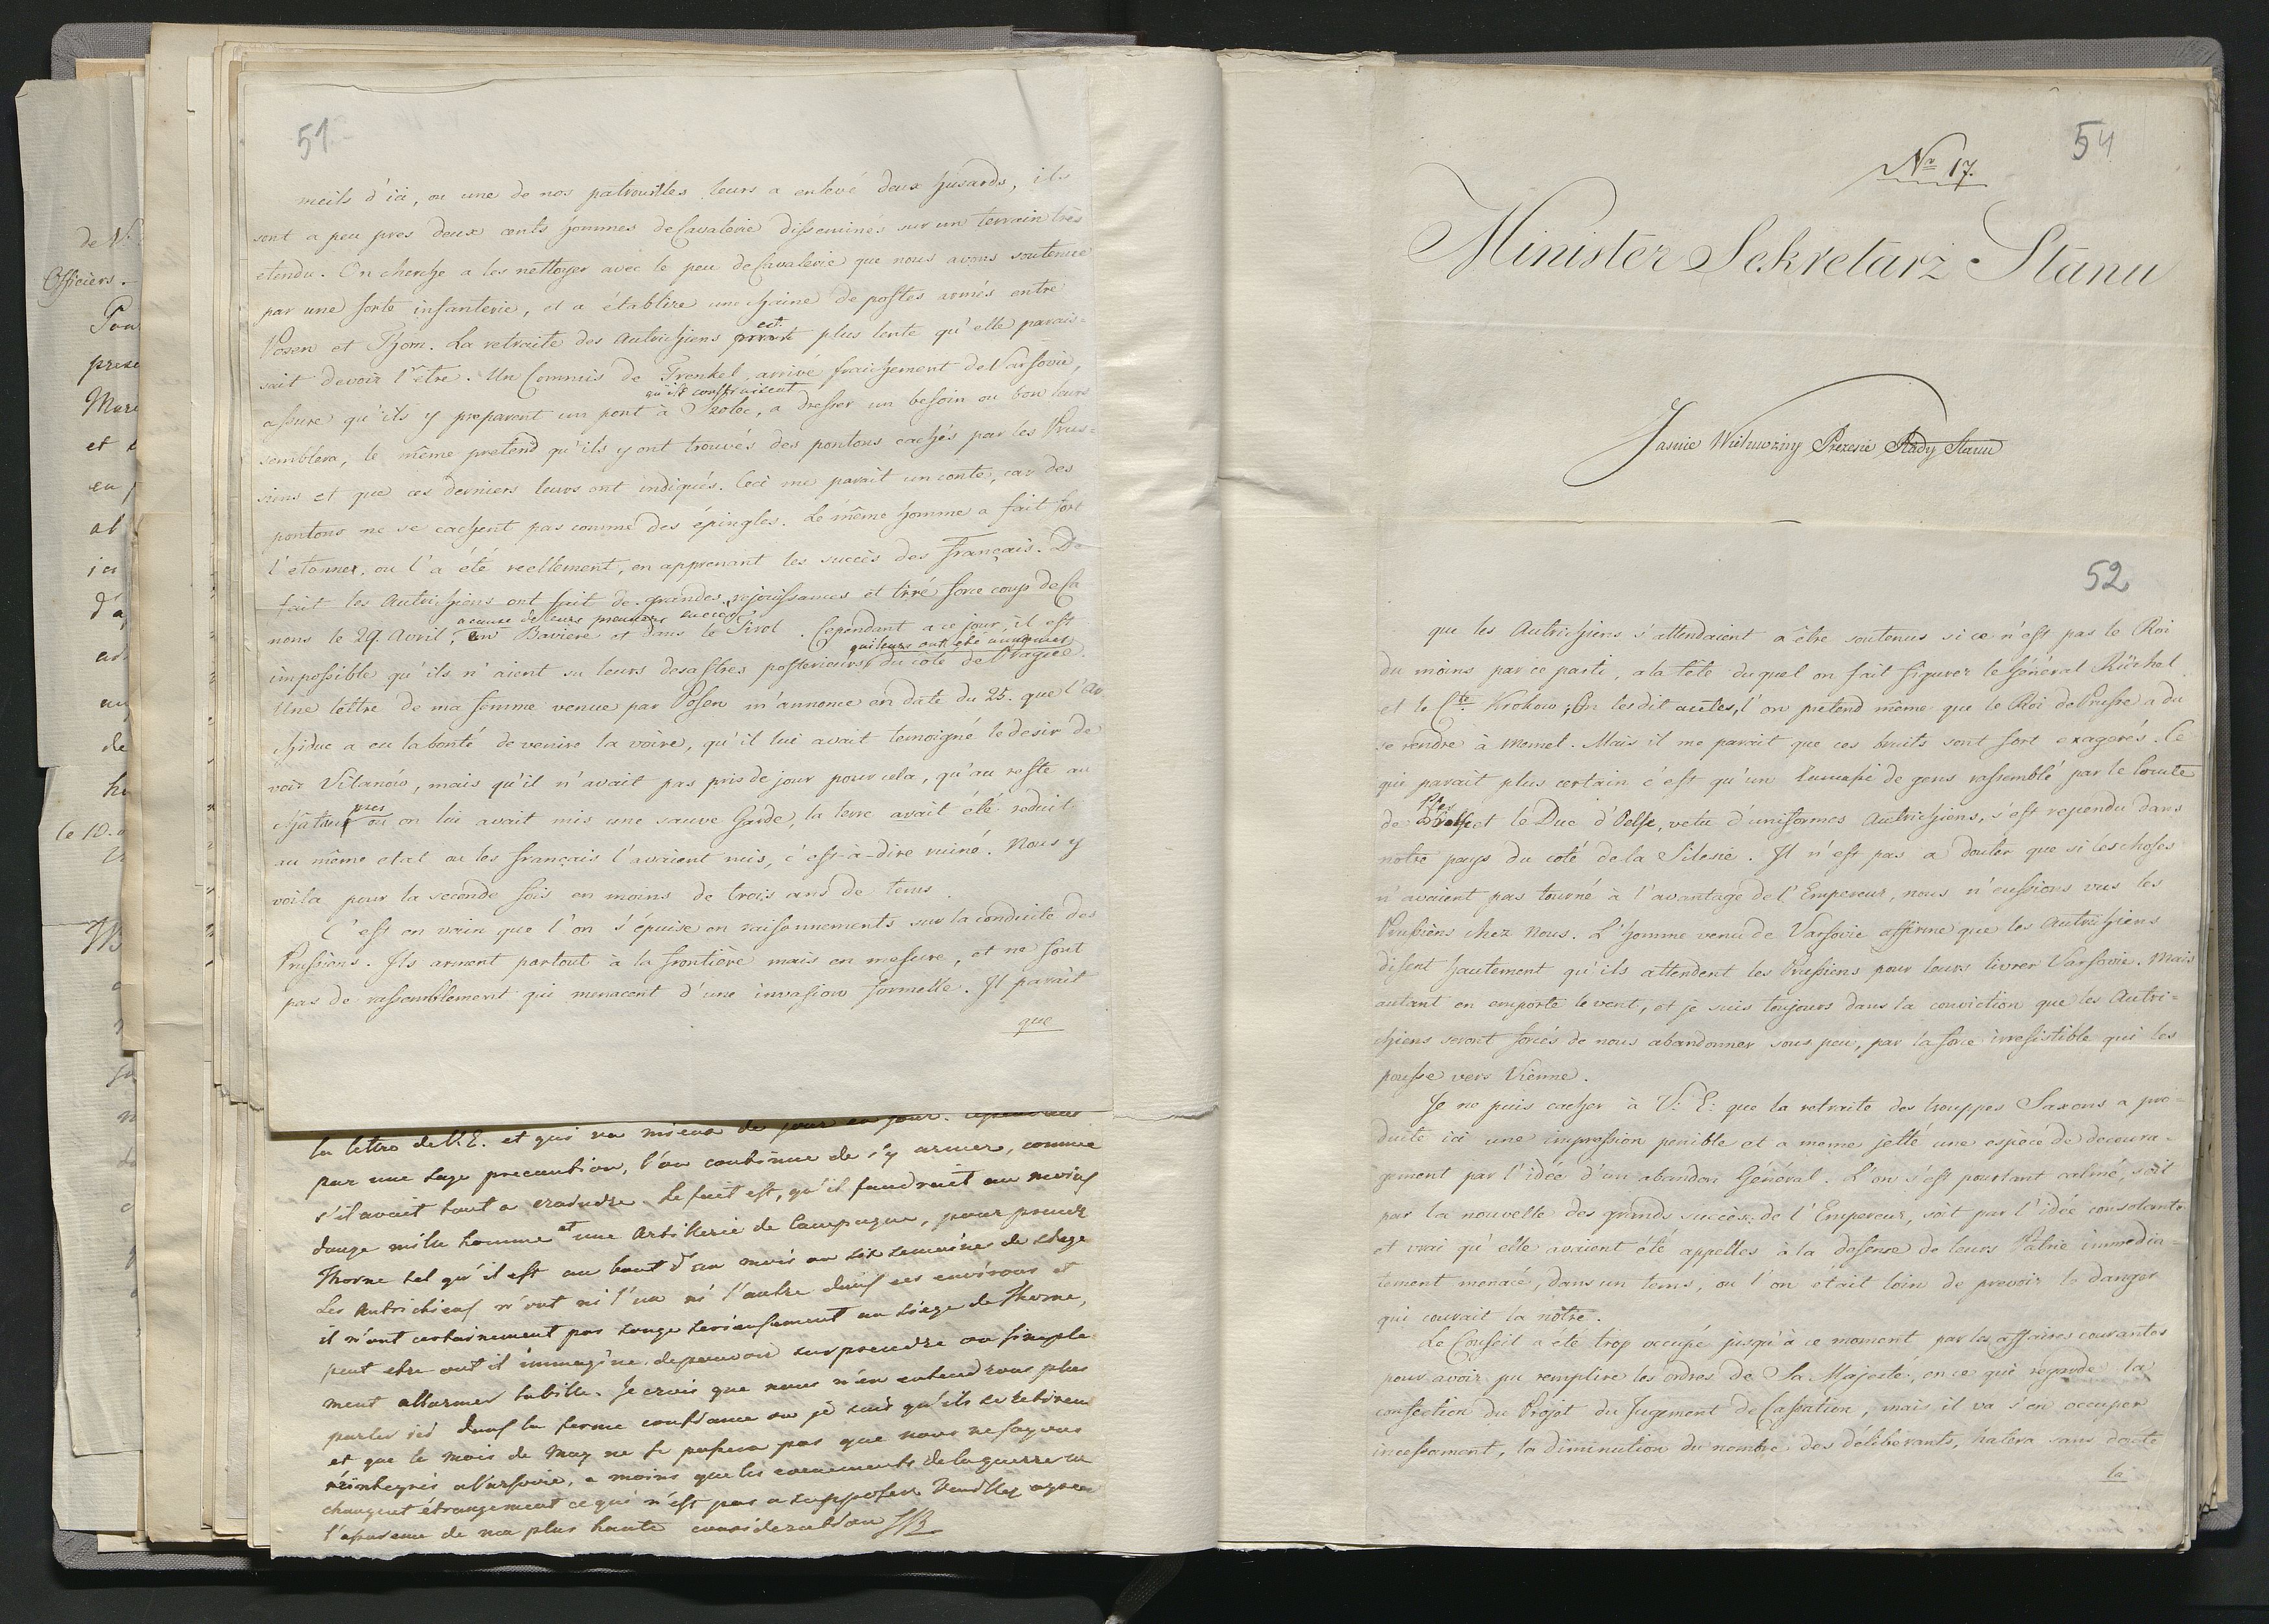 51.
meils d'ici, ou une de nos patrouilles leurs a enlevé deux husards, ils
sont a peu pres deux cents hommes de Cavalerie disseminés sur un terrain très
etendu. On cherche a les nettoyer avec le peu de Cavalerie que nous avons soutenue
par une forte infanterie, et a établire une chaine de postes armés entre
Posen et Thorn. La retraite des Autrichiens est plus lente qu'elle parais=
sait devoir l'etre. Un Commis de Frenkel, arrivé fraichement de Varsovie,
qu'ils construisent
assure qu'ils y preparent un pont à Szolec, a dresser un besoin ou bon leurs
semblera, le même pretend qu'ils y ont trouvés des pontons cachés par les Prus=
siens et que ces derniers leurs ont indiqués. Ceci me parait un conte, car des
pontons ne se cachent pas comme des épingles. Le même homme a fait fort
l'étonner, ou l'a été reellement, en apprenant les succès des Français. De
fait les Autrichiens ont fait de grandes rejouissances et tiré force coup de Ca
a cause de leurs premiers succès
nons le 29. Avril, en Baviere et dans le Tirol. Cependant a ce jour, il est
qui leurs ont été annoncer
impossible qu'ils n'aient su leurs desastres posterieurs du côté de Prague.
Une lettre de ma femme venue par Posen m'annonce en date du 25. que l'Ar
chiduc a eu la bonté de venire la voire, qu'il lui avait temoigné le desir de
voir Vilanów, mais qu'il n'avait pas pris de jour pour cela, qu'au reste au
pres
chateau ou on lui avait mis une sauve Garde, la terre avait été reduit
au même etat ou les français l'avaient mis, c'est-à-dire ruiné. Nous y
voila pour la seconde fois en moins de trois ans de tems.
C'est en vain que l'on s'épuise en raisonnements sur la conduite des
Prussiens. Ils arment partout à la frontière mais en mesure, et ne font
pas de rassemblement qui menacent d'une invasion formelle. Il parait
que
la lettre de V.E. et qui va mieux de jour en jour.
par une sage precaution, l'on continue de s'y armer, comme
s'il avait tout a craindre. Le fait est, qu'il faudrait au moins
douze mille homme et une Artillerie de Campagne, pour prendre
Thorne tel qu'il est au bout d'un mois ou six semaines de siege
Les Autrichiens n'ont ni l'un ni l'autre dans ces environs et
il n'ont certainement pas songe serieusement au siege de Thorne,
peut etre ont il immaginé de pouvoir surprendre ou simple
ment allarmer la ville. Je crois que nous n'en entendrons plus
parler ici dans la ferme confiance ou je suis qu'ils se retirent
et que le mois de May ne se passera pas que nous ne soyons
réintegrés a Varsovie, a moins que les evenements de la guerre ne
changent étrangement ce qui n'est pas a supposer Veuillez agreer
l'assurance de ma plus haute consideration
54
Nr 17.
Minister Sekretarz Stanu
Jasnie Wielmożny Prezesie Rady Stanu
52
que les Autrichiens s'attendaient a être soutenus si ce n'est pas le Roi
du moins par ce parti, a la tête duquel on fait figurer le Général Rüchel
et le Cte Krokow; On les dit accélés, l'on pretend même que le Roi de Prusse a du
se rendre à Memel. Mais il me parait que ces bruits sont fort exagerés. Ce
qui parait plus certain c'est qu'un Ramassi de gens rassemblé par le Comte
de Ples et le Duc d'Oelse, vetu d'uniformes Autrichiens, s'est rependu dans
notre pays du coté de la Silesie. Il n'est pas a douter que si les choses
n'avaient pas tourné à l'avantage de l'Empereur, nous n'eussions vus les
Prussiens chez Nous. L'homme venu de Varsovie affirme que les Autrichiens
disent hautement qu'ils attendent les Prussiens pour leurs livrer Varsovie. Mais
autant en emporte le vent, et je suis toujours dans la conviction que les Autri=
chiens seront forcés de nous abandonner sous peu, par la force irresistible qui les
pousse vers Vienne.
Je ne puis cacher à V: E: que la retraite des trouppes Saxons a pro=
duite ici une impression penible et a meme jetté une espèce de decoura=
gement par l'idée d'un abandon Général. L'on s'est pourtant calmé, soit
par la nouvelle des grands succès de l'Empereur, soit par l'idée consolante
et vrai qu'elle avaient été appelles à la defense de leurs Patrie immedia=
tement menacé, dans un tems, ou l'on était loin de prevoir le danger
qui courait la nôtre.
Le Conseil a été trop occupé jusqu'à ce moment par les affaires courantes
pour avoir pu remplire les ordres de Sa Majesté, en ce qui regarde la
confection du Projet du Jugement de Cassation, mais il va s'en occuper
incessament, la diminution du nombre des deliberants, hatera sans doute
la